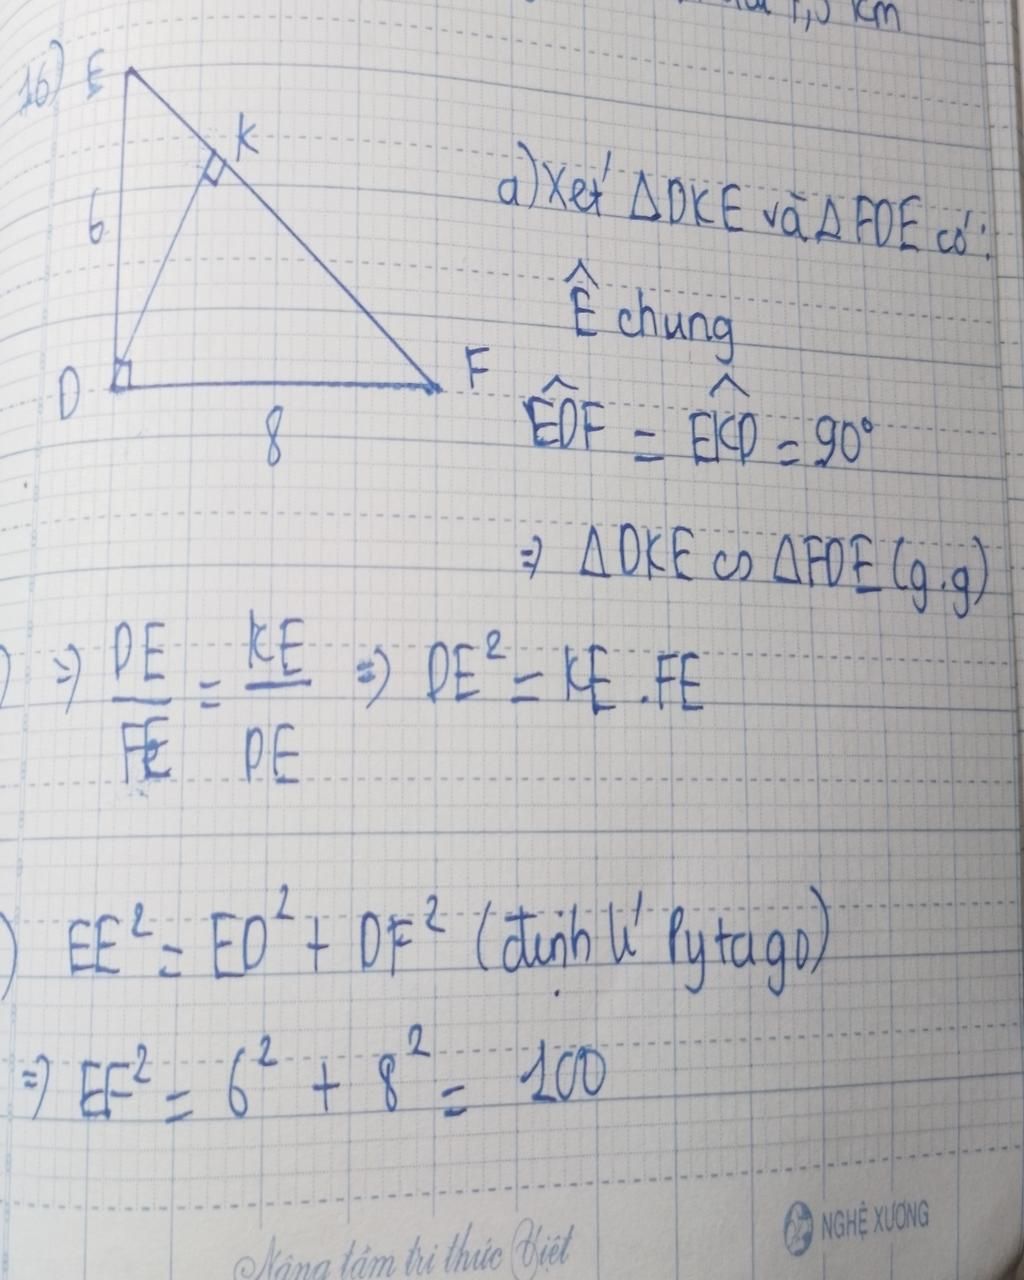 1,5 km
16) E
K
6
D
F
8
a) Xét ΔDKE và ΔFDE có:
Ê chung
EDF̂ = EKD̂ = 90°
⇒ ΔDKE ∽ ΔFDE (g.g)
) ⇒ DE/FE = KE/DE ⇒ DE² = KE.FE
) EE² = ED² + DF² (định lí Pytago)
⇒ EF² = 6² + 8² = 100
Nâng tầm tri thức Việt
NGHỆ XƯƠNG